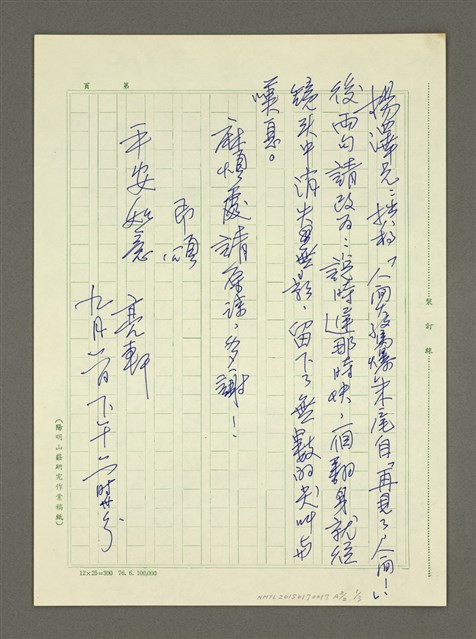 楊澤兄：拙稿「人間大孫爆米尾自「再見了人間！」
後兩句請改为：說時遲那時快，一個翻身就從
鏡頭中消失無影，留下了無數的尖叫与
嘆息。
麻煩處請原諒，多謝！
即頌
平安如意
亮軒
九月六日下午六時廿分
第 頁
裝訂線
（陽明山莊研究作業稿紙）
12×25=300 76. 6. 100,000
NMTL20150170017